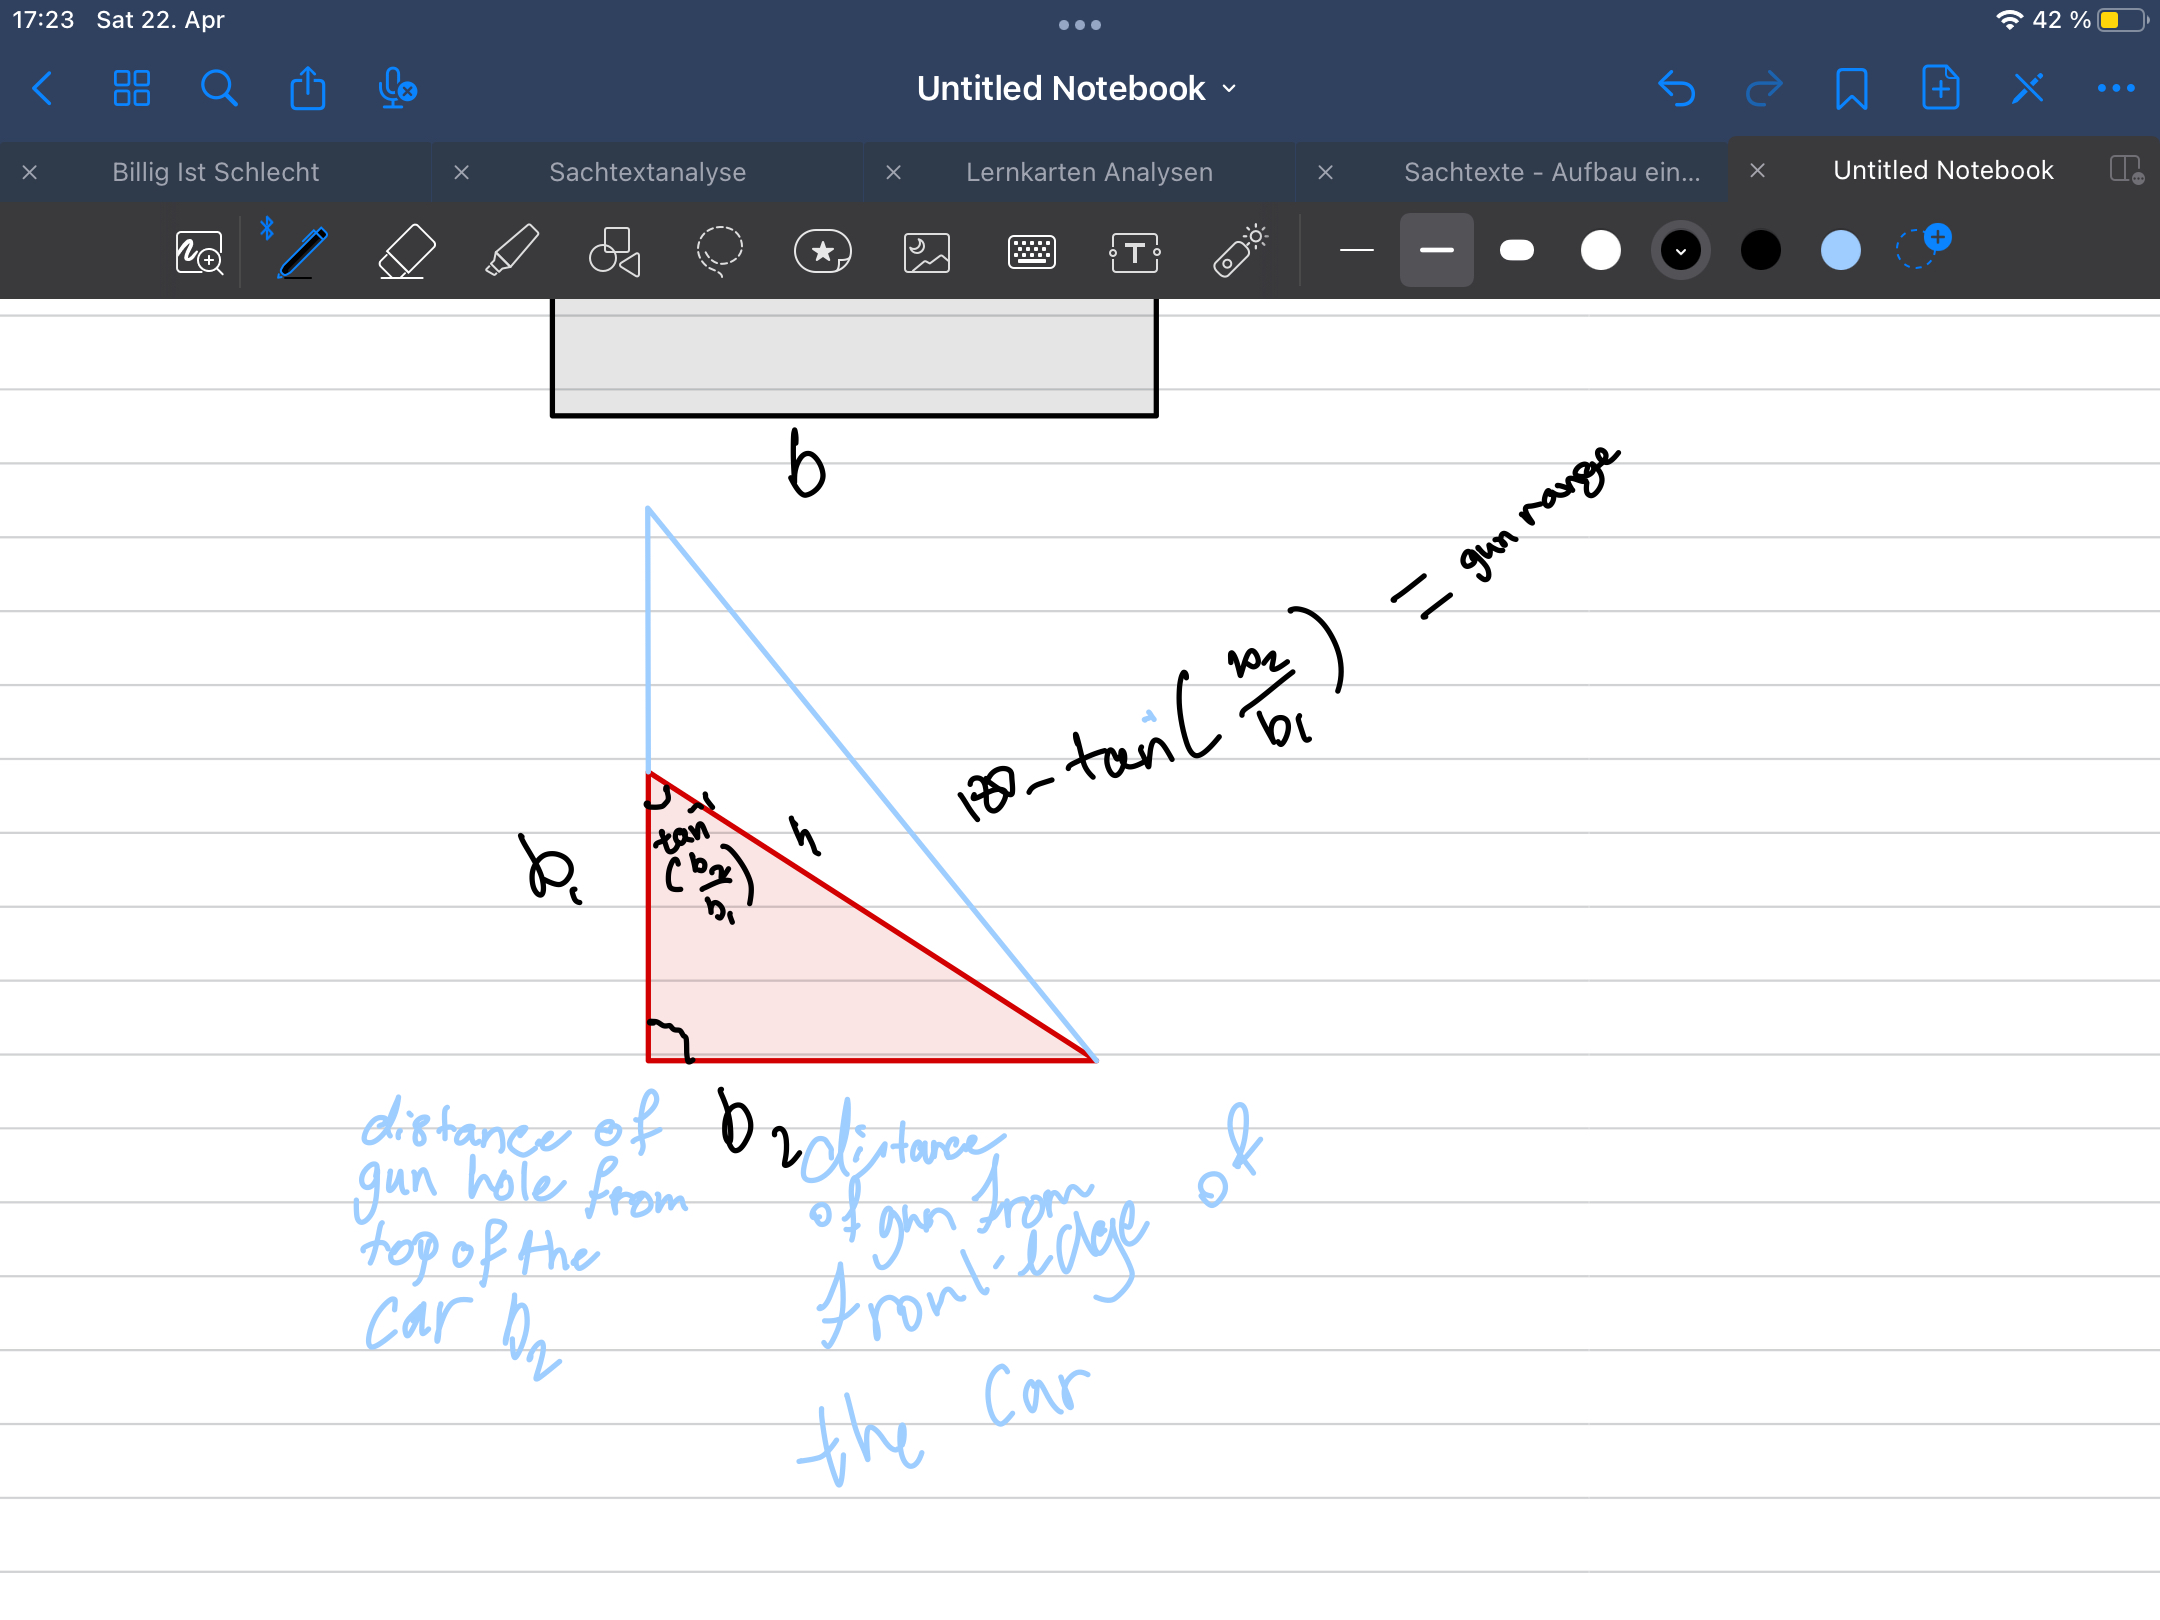 17:23 Sat 22. Apr
42 %
Untitled Notebook
Billig Ist Schlecht
Sachtextanalyse
Lernkarten Analysen
Sachtexte - Aufbau ein...
Untitled Notebook
T
b
180 - tan⁻¹(b2/b1) = gun range
b1
tan⁻¹
(b2/b1)
h
b2
distance of
gun hole from
top of the
car b2
distance
of gun from
front edge of
the car